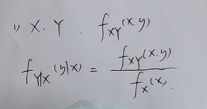 1) X. Y. f_{XY}(x.y)
f_{Y|X}(y|x) = \frac{f_{XY}(x.y)}{f_X(x)}